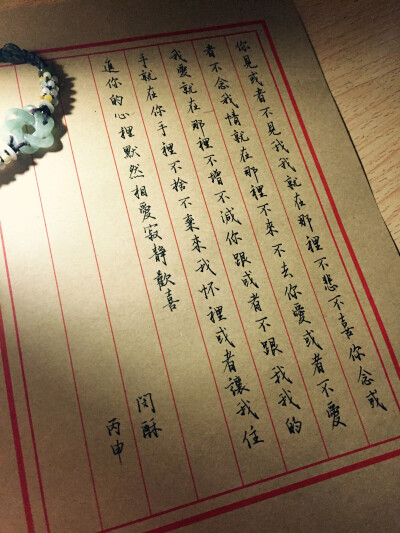 你見或者不見我我就在那裡不悲不喜你念或
者不念我情就在那裡不來不去你愛或者不愛
我愛就在那裡不增不減你跟或者不跟我我的
手就在你手裡不捨不棄來我怀裡或者讓我住
進你的心裡默然相愛寂靜歡喜
闵酥
丙申